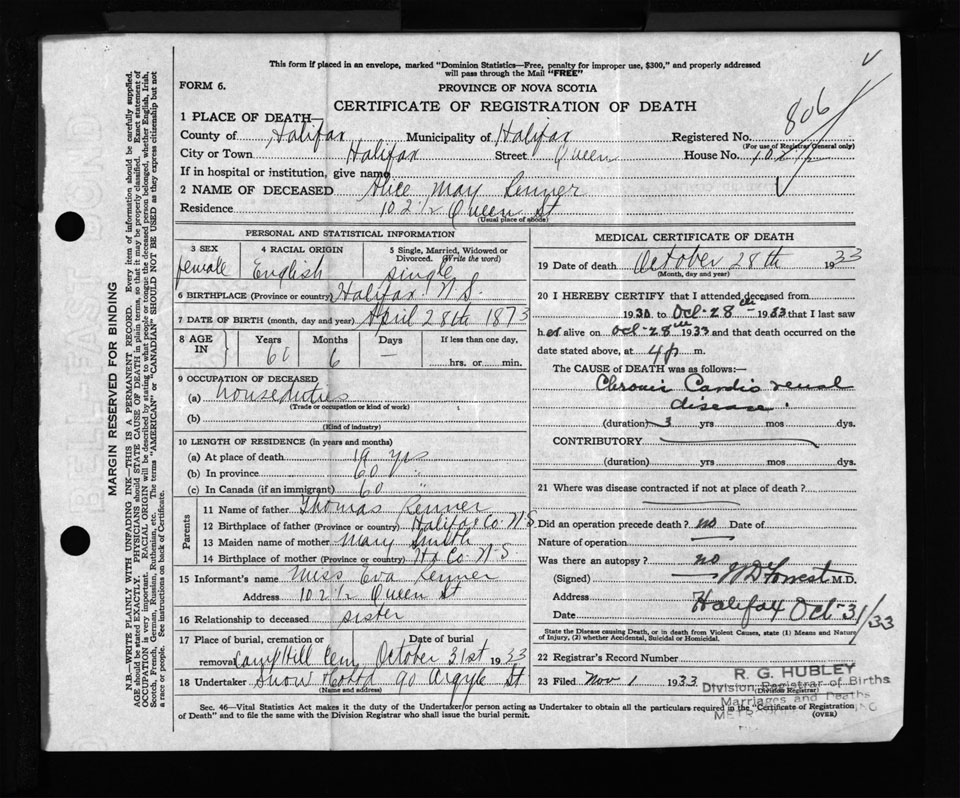 This form if placed in an envelope, marked "Dominion Statistics—Free, penalty for improper use, $300," and properly addressed
will pass through the Mail "FREE"
FORM 6.
PROVINCE OF NOVA SCOTIA
CERTIFICATE OF REGISTRATION OF DEATH
806
1 PLACE OF DEATH—
County of Halifax Municipality of Halifax Registered No.
(For use of Registrar General only)
City or Town Halifax Street Queen House No. 102½
If in hospital or institution, give name
2 NAME OF DECEASED Alice May Renner
Residence 102½ Queen St
(Usual place of abode)
PERSONAL AND STATISTICAL INFORMATION
3 SEX 4 RACIAL ORIGIN 5 Single, Married, Widowed or Divorced. (Write the word)
female English single
6 BIRTHPLACE (Province or country) Halifax N.S.
7 DATE OF BIRTH (month, day and year) April 28th 1873
8 AGE IN Years Months Days If less than one day,
6 — hrs. or min.
9 OCCUPATION OF DECEASED
(a) houseduties
(Trade or occupation or kind of work)
(b)
(Kind of industry)
10 LENGTH OF RESIDENCE (in years and months)
(a) At place of death 19 yrs
(b) In province 60 "
(c) In Canada (if an immigrant) 60 "
Parents
11 Name of father Thomas Renner
12 Birthplace of father (Province or country) Halifax Co N.S
13 Maiden name of mother Mary Smith
14 Birthplace of mother (Province or country) Hx Co N-S
15 Informant's name Miss Eva Renner
Address 102½ Queen St
16 Relationship to deceased sister
17 Place of burial, cremation or removal Date of burial
Camp Hill Cem October 31st 1933
18 Undertaker Snow & Co Ltd 90 Argyle St
(Name and address)
MEDICAL CERTIFICATE OF DEATH
19 Date of death October 28th 1933
(Month, day and year)
20 I HEREBY CERTIFY that I attended deceased from
1930 to Oct-28th 1933 that I last saw
her alive on Oct-28th 1933 and that death occurred on the
date stated above, at 4 p m.
The CAUSE of DEATH was as follows:—
Chronic Cardio renal
disease.
(duration) 3 yrs mos dys.
CONTRIBUTORY
(duration) yrs mos dys.
21 Where was disease contracted if not at place of death?
Did an operation precede death? no Date of
Nature of operation
Was there an autopsy? no
(Signed) Forrest M.D.
Address Halifax
Date Oct-31/33
State the Disease causing Death, or in death from Violent Causes, state (1) Means and Nature
of Injury, (2) whether Accidental, Suicidal or Homicidal.
22 Registrar's Record Number
23 Filed Nov 1 1933
(Division Registrar)
R. G. HUBLEY
Division Registrar of Births
Marriages and Deaths
Sec. 46—Vital Statistics Act makes it the duty of the Undertaker or person acting as Undertaker to obtain all the particulars required in the "Certificate of Registration
of Death" and to file the same with the Division Registrar who shall issue the burial permit.
(OVER)
MARGIN RESERVED FOR BINDING
N.B.—WRITE PLAINLY WITH UNFADING INK—THIS IS A PERMANENT RECORD. Every item of information should be carefully supplied.
AGE should be stated EXACTLY. PHYSICIANS should STATE CAUSE OF DEATH in plain terms, so that it may be properly classified. Exact statement of
OCCUPATION is very important. RACIAL ORIGIN will be described by stating to what people or tongue the deceased person belonged, whether English, Irish,
Scotch, French, German, Russian, Ruthenian, etc. The terms "AMERICAN" or "CANADIAN" SHOULD NOT BE USED as they express citizenship but not
a race or people. See instructions on back of Certificate.